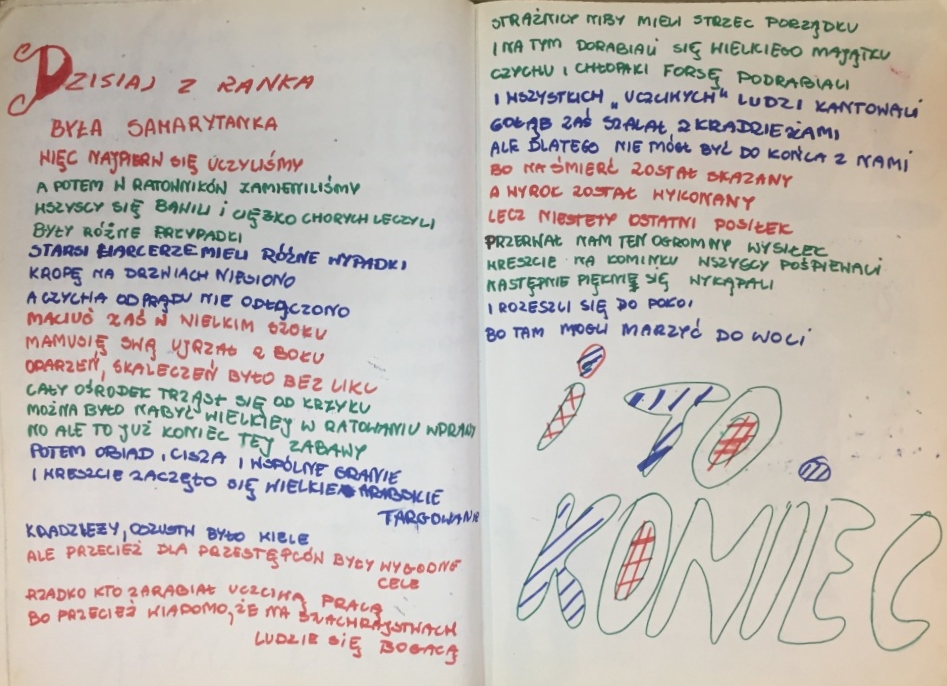 DZISIAJ Z RANKA
BYŁA SAMARYTANKA
WIĘC NAJPIERW SIĘ UCZYLIŚMY
A POTEM W RATOWNIKÓW ZAMIENILIŚMY
WSZYSCY SIĘ BAWILI I CIĘŻKO CHORYCH LECZYLI
BYŁY RÓŻNE PRZYPADKI
STARSI HARCERZE MIELI RÓŻNE WYPADKI
KROPĘ NA DRZWIACH NIESIONO
A CZYCHA OD PRĄDU NIE ODŁĄCZONO
MACIUŚ ZAŚ W WIELKIM SZOKU
MAMUSIĘ SWĄ UJRZAŁ Z BOKU
OPARZEŃ, SKALECZEŃ BYŁO BEZ LIKU
CAŁY OŚRODEK TRZĄSŁ SIĘ OD KRZYKU
MOŻNA BYŁO NABYĆ WIELKIEJ W RATOWANIU WPRAWY
NO ALE TO JUŻ KONIEC TEJ ZABAWY
POTEM OBIAD, CISZA I WSPÓLNE GRANIE
I WRESZCIE ZACZĘŁO SIĘ WIELKIE ARABSKIE
TARGOWANIE
KRADZIEŻY, OSZUSTW BYŁO WIELE
ALE PRZECIEŻ DLA PRZESTĘPCÓW BYŁY WYGODNE
CELE
RZADKO KTO ZARABIAŁ UCZCIWĄ PRACĄ
BO PRZECIEŻ WIADOMO, ŻE NA SZACHRAJSTWACH
LUDZIE SIĘ BOGACĄ
STRAŻNICY NIBY MIELI STRZEC PORZĄDKU
I NA TYM DORABIALI SIĘ WIELKIEGO MAJĄTKU
CZYCHU I CHŁOPAKI FORSĘ PODRABIALI
I WSZYSTKICH „UCZCIWYCH" LUDZI KANTOWALI
GOŁĄB ZAŚ SZALAŁ Z KRADZIEŻAMI
ALE DLATEGO NIE MÓGŁ BYĆ DO KOŃCA Z NAMI
BO NA ŚMIERĆ ZOSTAŁ SKAZANY
A WYROK ZOSTAŁ WYKONANY
LECZ NIESTETY OSTATNI POSIŁEK
PRZERWAŁ NAM TEN OGROMNY WYSIŁEK
WRESZCIE NA KOMINKU WSZYSCY POŚPIEWALI
NASTĘPNIE PIĘKNIE SIĘ WYKĄPALI
I ROZESZLI SIĘ DO POKOI
BO TAM MOGLI MARZYĆ DO WOLI
I TO
KONIEC